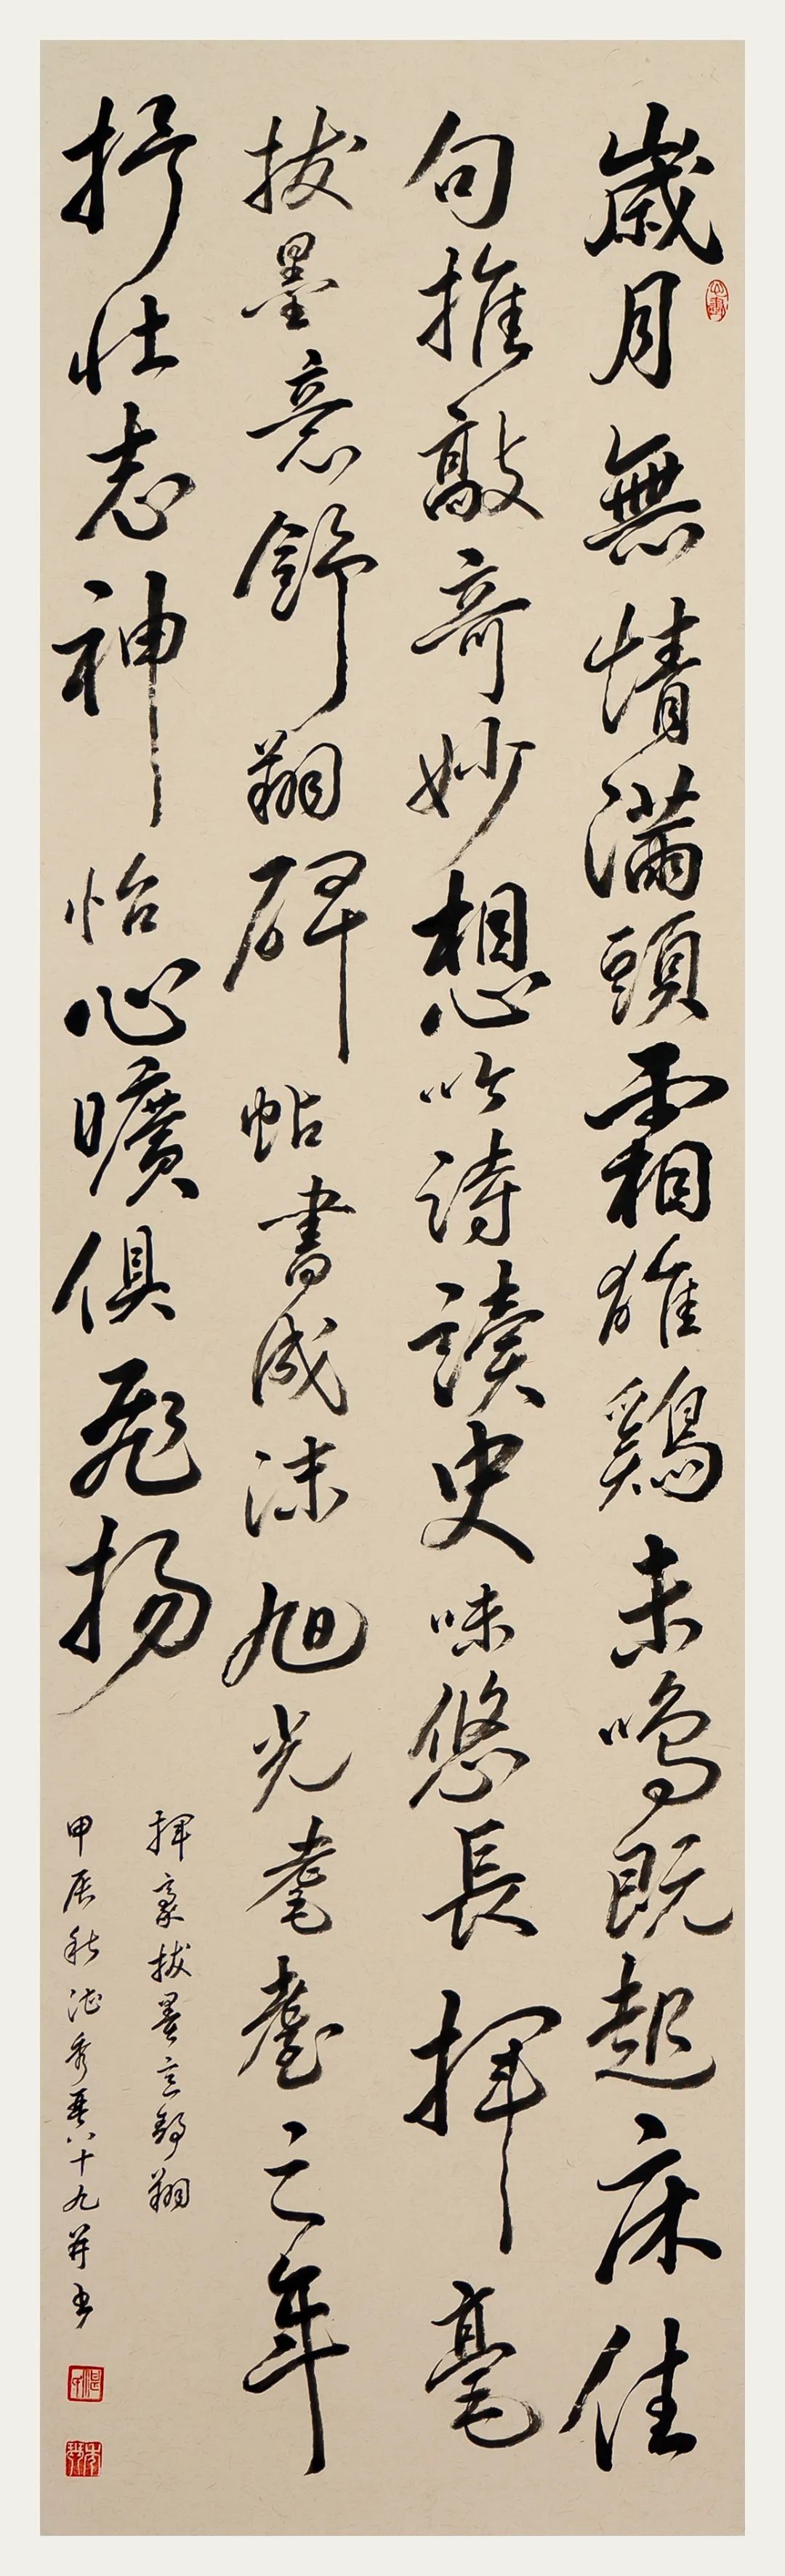 歲月無情滿頭霜雄鷄未鳴既起床佳
句推敲奇妙想吟詩讀史味悠長揮毫
拔墨意舒翔碑帖書成沫旭光耄耋之年
抒壮志神怡心曠俱飛揚
揮毫拔墨意舒翔
甲辰秋八十九并书